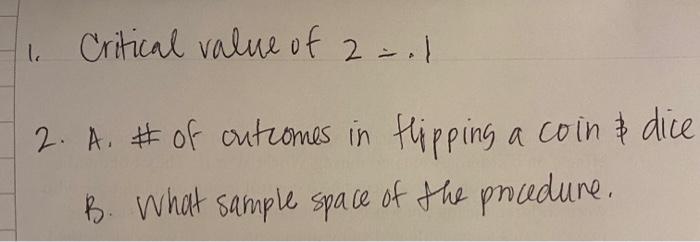 1. Critical value of 2 = .1
2. A. # of outcomes in flipping a coin & dice
B. What sample space of the procedure.